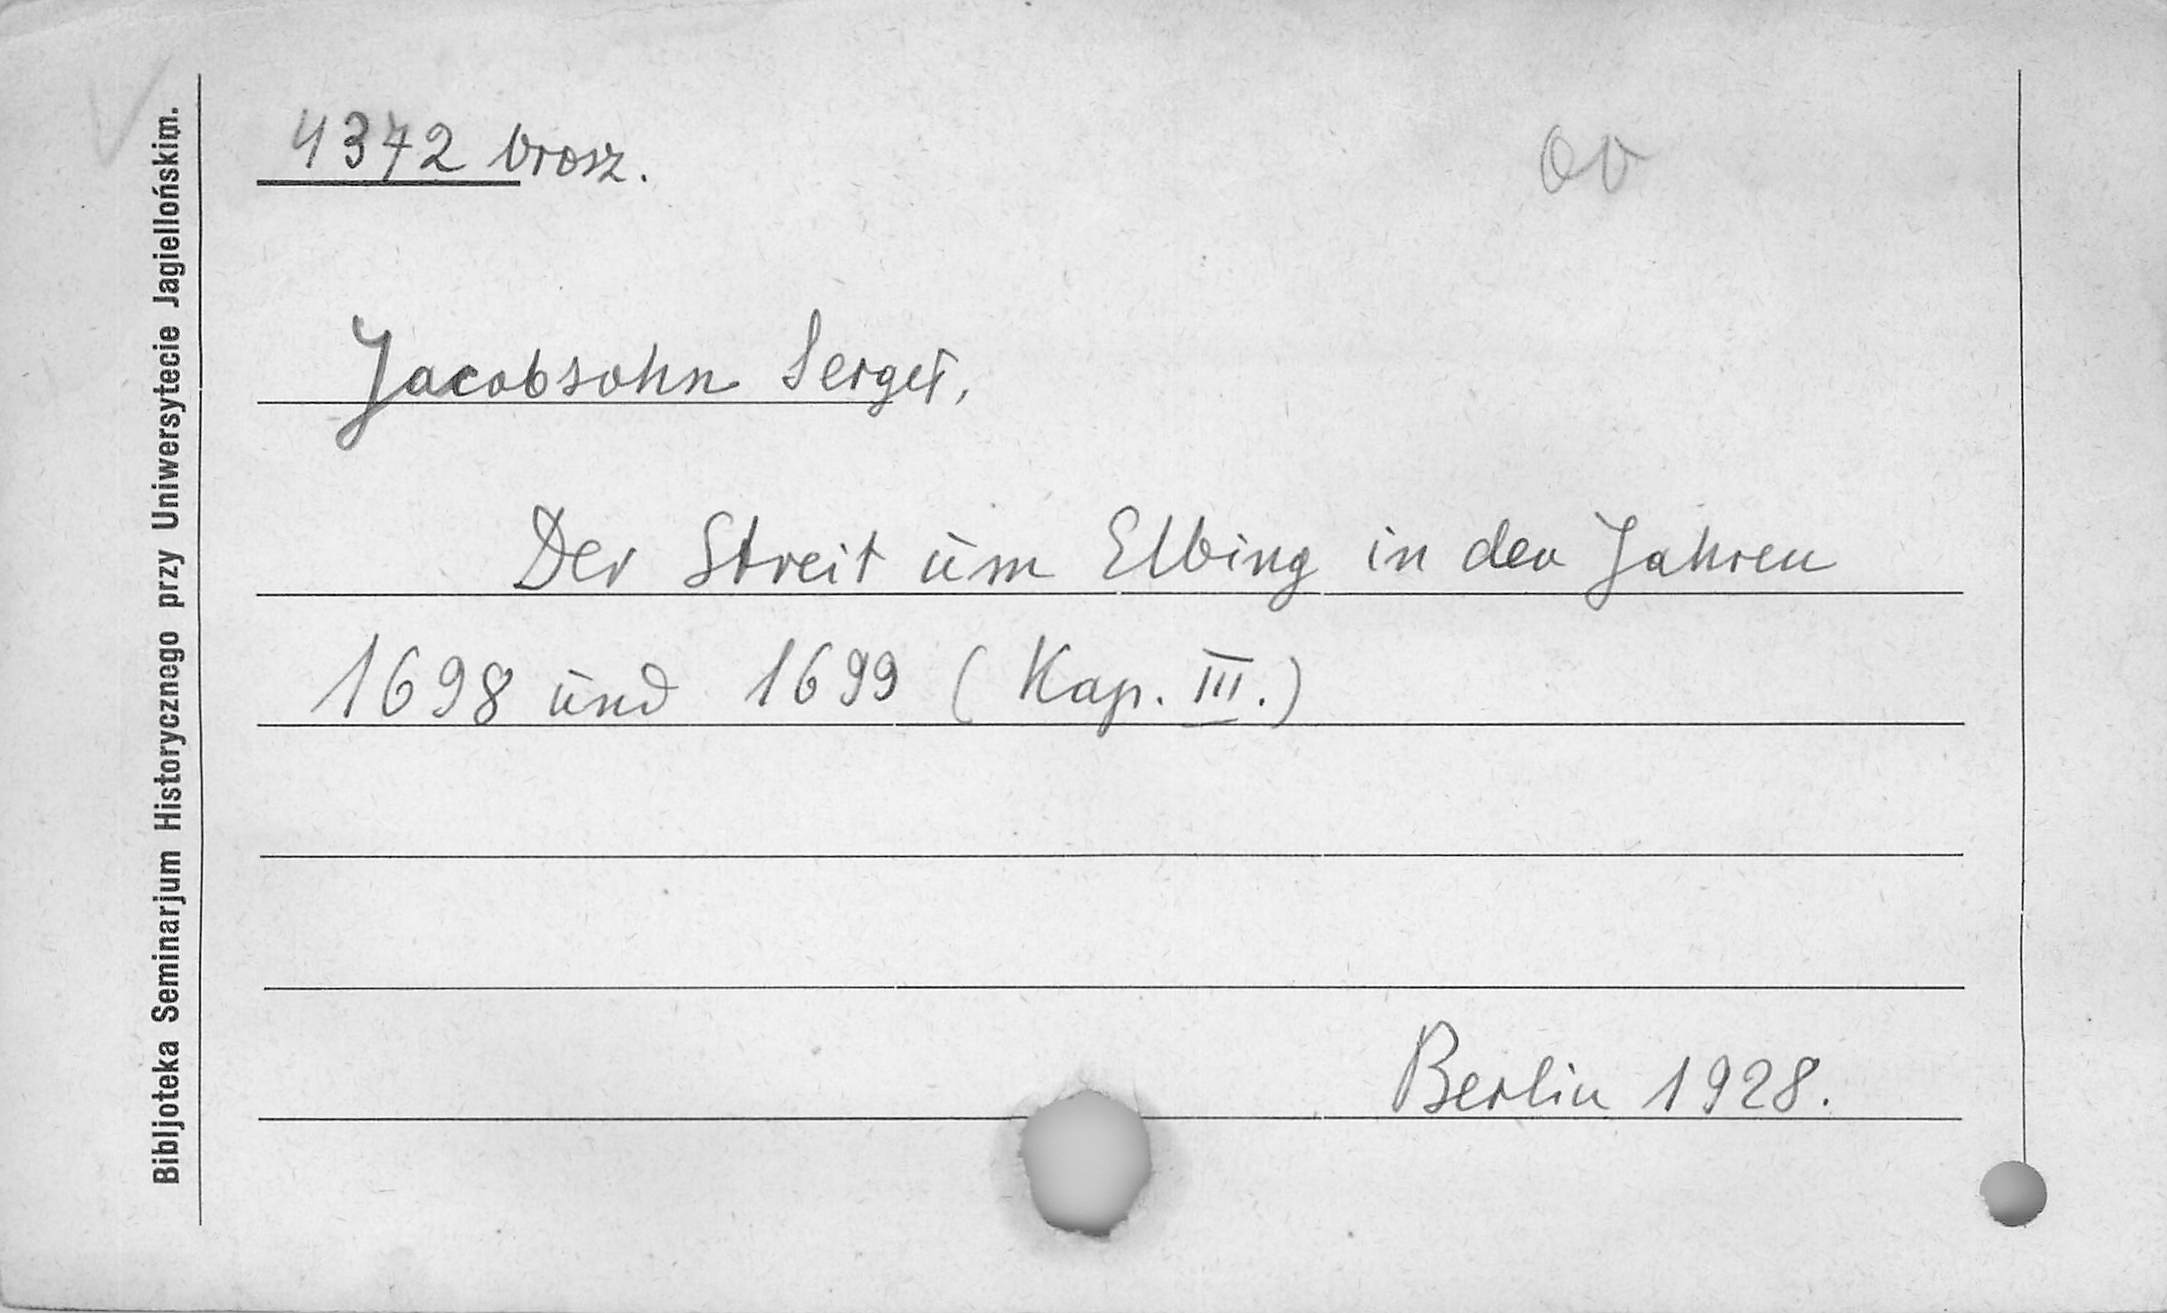 4372 brosz.
Jacobsohn Sergei,
Der Streit um Elbing in den Jahren
1698 und 1699 (Kap. III.)
Berlin 1928.
Bibljoteka Seminarjum Historycznego przy Uniwersytecie Jagiellońskim.